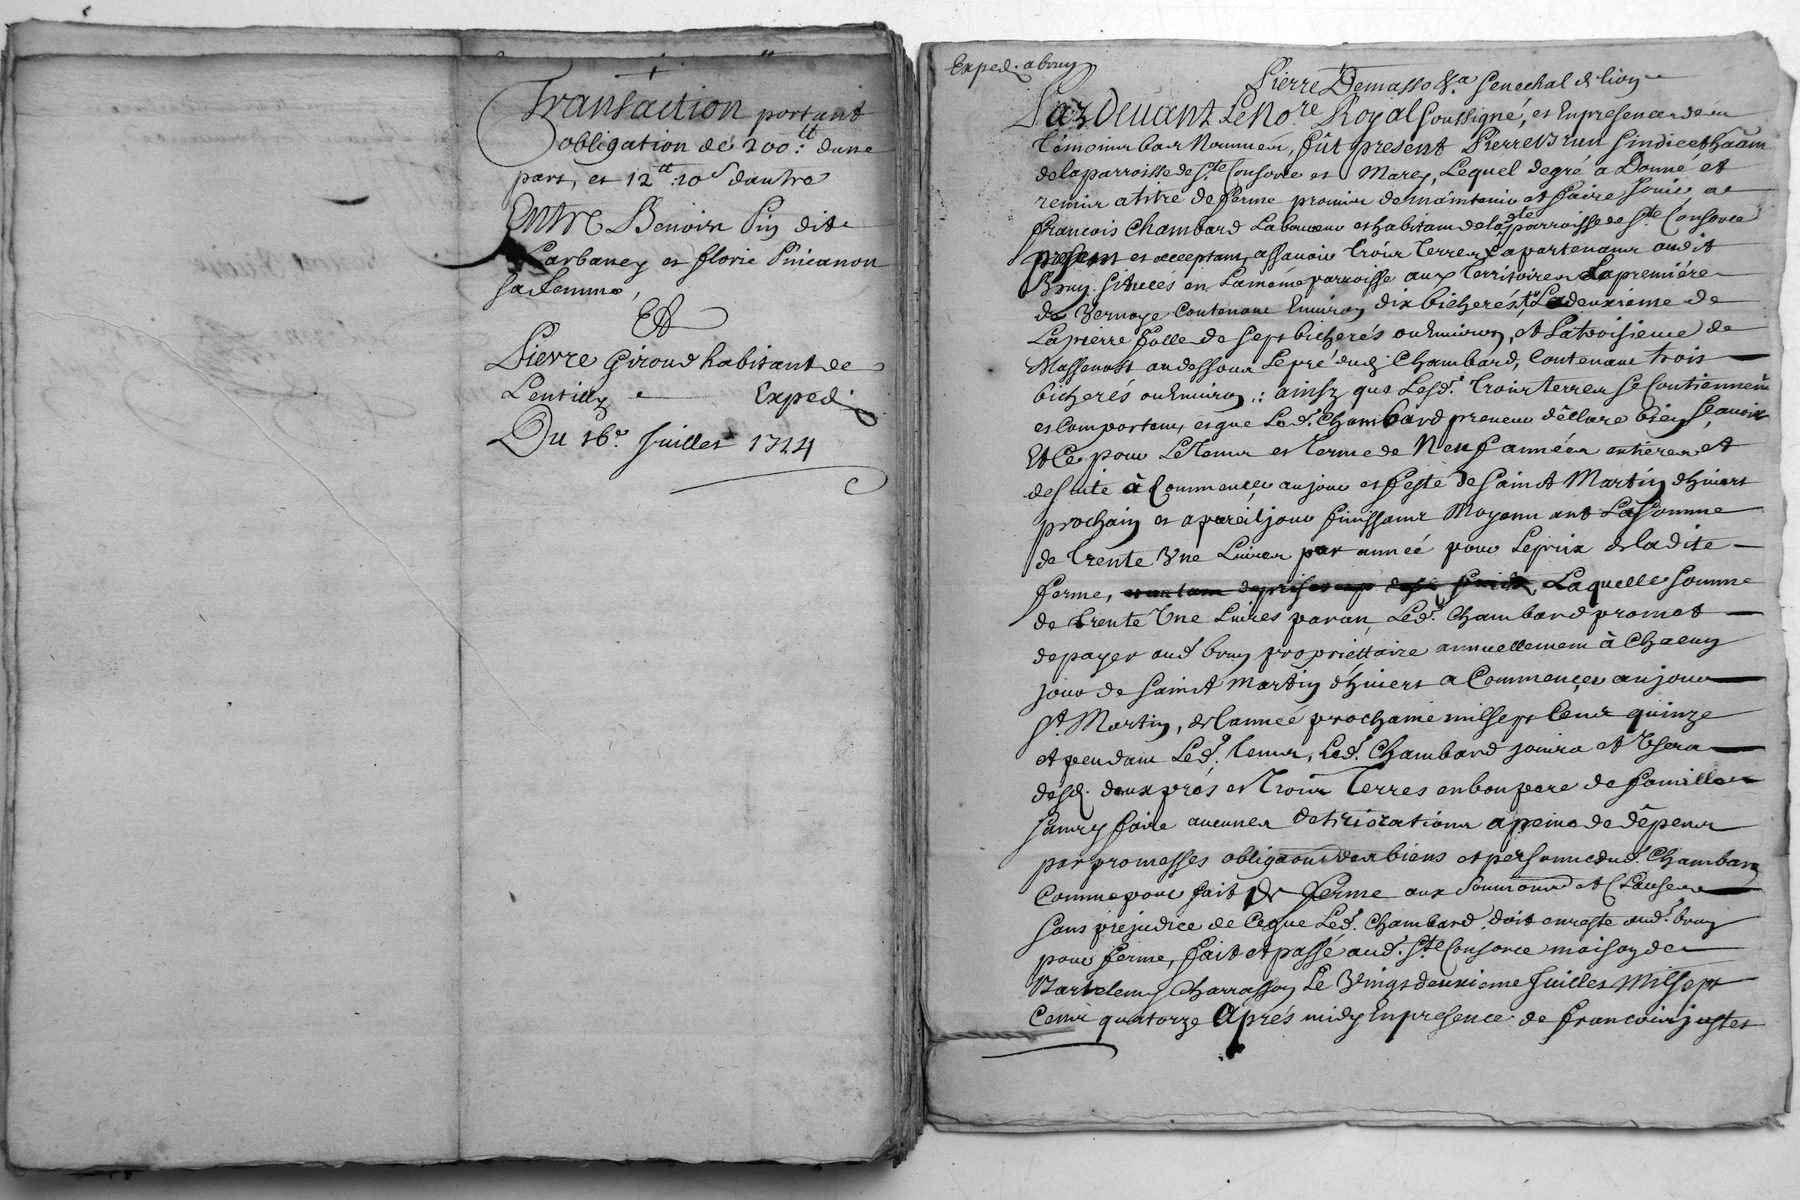 Transaction portant
obligation de 200.tt dune
part, et 12tt 10s dautre
Entre Benoist Pin dit
Larbaney et florie Pincanon
sa femme,
Et
Pierre Giroud habitant de
Lentilly Exped.
Du 16e Juillet 1714
Exped. a brun
Pierre Demasso &a Senechal de lion
Par devant Le No.re Royal soussigné, et En presence des
temoins bas Nommés, fût present Pierre Brun sindic et hãam
de la parroisse de S.te Consorce et Marcy, Lequel de gré a Donné et
remis a titre de ferme promis de maintenir et faire Jouir a
francois Chambard Laboureur et habitam de lad.te parroisse de S.te Consorce
present et acceptant, assavoir trois terres apartenant audit
Brun, situés en La même parroisse aux territoires La premiére
de Vernaye Contenant Environ dix bicherés, La deuxieme de
La pierre folle de sept bicherés ou Environ, et La troisieme de
Massenost au dessous Le pré dud. Chambard, Contenant trois
bicherés ou Environ,: ainsy que Lesd. trois terres se Contiennent
et Comportent, et que Led. Chambard preneur dêllare bien sçavoir
Et Ce pour Le Tems et terme de Neuf années entieres et
de suite à Commencer au jour et feste de Saint Martin dhivert
prochain et a pareil jour finissant Moyennant La somme
de trente Une Livres par année pour Le prix de la dite
ferme, Laquelle somme
de trente Une Livres par an, Led. Chambard promet
de payer aud. brun propriéttaire annuellement à Chacun
jour de Saint Martin dhivert a Commencer au jour
S.t Martin, de lannée prochaine mil sept Cent quinze
et pendant Led. tems, Led. Chambard jouira et Usera
desd. deux prés et trois Terres en bon pere de famille
sans y faire aucunes detiriorations a peine de dépens
par promesses obligãons des biens et personne dud. Chambard
Comme pour fait de ferme aux soumõns et Clauses
sans prejudice de Ce que Led. Chambard doit en reste aud. brun
pour ferme, fait et passé aud. S.te Consorce maison de
Bartelemy Charrasson Le Vingt deuxieme Juillet Mil sept
Cent quatorze Après midy En presence de francois justet